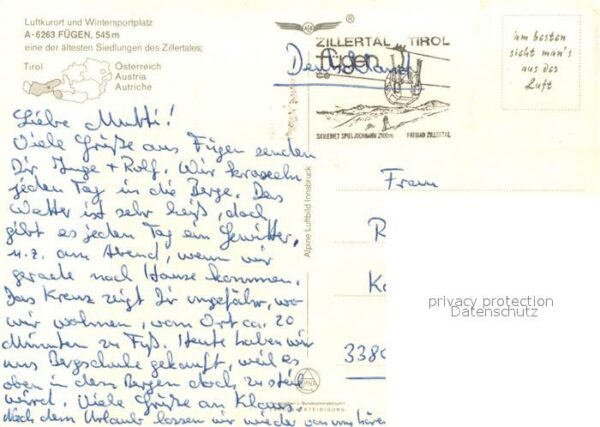 Luftkurort und Wintersportplatz
A-6263 FÜGEN, 545m
eine der ältesten Siedlungen des Zillertales;
Tirol
Österreich
Austria
Autriche
®
ZILLERTAL TIROL
fügen
Deutschland
SKIGEBIET SPIELJOCHBAHN 2100m FREIBAD ZILLERTAL
am besten
sieht man's
aus der
Luft
Liebe Mutti!
Viele Grüße aus Fügen senden
Dir Inge + Rolf. Wir kraxeln
jeden Tag in die Berge. Das
Wetter ist sehr heiß, doch
gibt es jeden Tag ein Gewitter,
u.z. am Abend, wenn wir
gerade nach Hause kommen.
Das Kreuz zeigt Dir ungefähr, wo
wir wohnen, vom Ort ca. 20
Minuten zu Fuß. Heute haben wir
uns Bergschuhe gekauft, weil es
oben in den Bergen doch zu steil
wird. Viele Grüße an Klaus.
Nach dem Urlaub lassen wir wieder von uns hören
Alpine Luftbild Innsbruck
Frau
R
Ka
338
privacy protection
Datenschutz